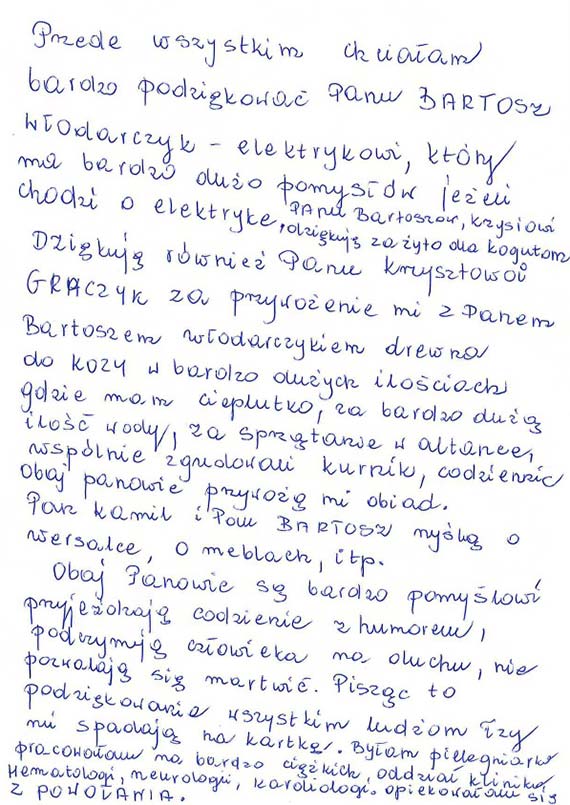 Przede wszystkim chciałam
bardzo podziękować Panu BARTOSZ
WŁODARCZYK - elektrykowi, który
ma bardzo dużo pomysłów jeżeli
chodzi o elektrykę, Panu Bartoszow, Krzysiowi
, dziękuję za żyto dla kogutom
Dziękuję również Panu Krzysztowoi
GRACZYK za przywożenie mi z Panem
Bartoszem Włodarczykiem drewna
do kozy w bardzo dużych ilościach
gdzie mam cieplutko, za bardzo dużą
ilość wody, za sprzątanie w altance,
wspólnie zbudowali kurnik, codziennie
Obaj panowie przywożą mi obiad.
Pan Kamil i Pan BARTOSZ myślą o
wersalce, o meblach, itp.
Obaj Panowie są bardzo pomysłowi
przyjeżdżają codzienie z humorem,
podtrzymują człowieka na duchu, nie
pozwalają się martwić. Pisząc to
podziękowanie wszystkim ludziom łzy
mi spadają na kartkę. Byłam pielęgniarką
pracowałam na bardzo ciężkich, oddział kliniki
Hematologi, neurologii, kardiologi. opiekowałam się
Z POWOŁANIA.